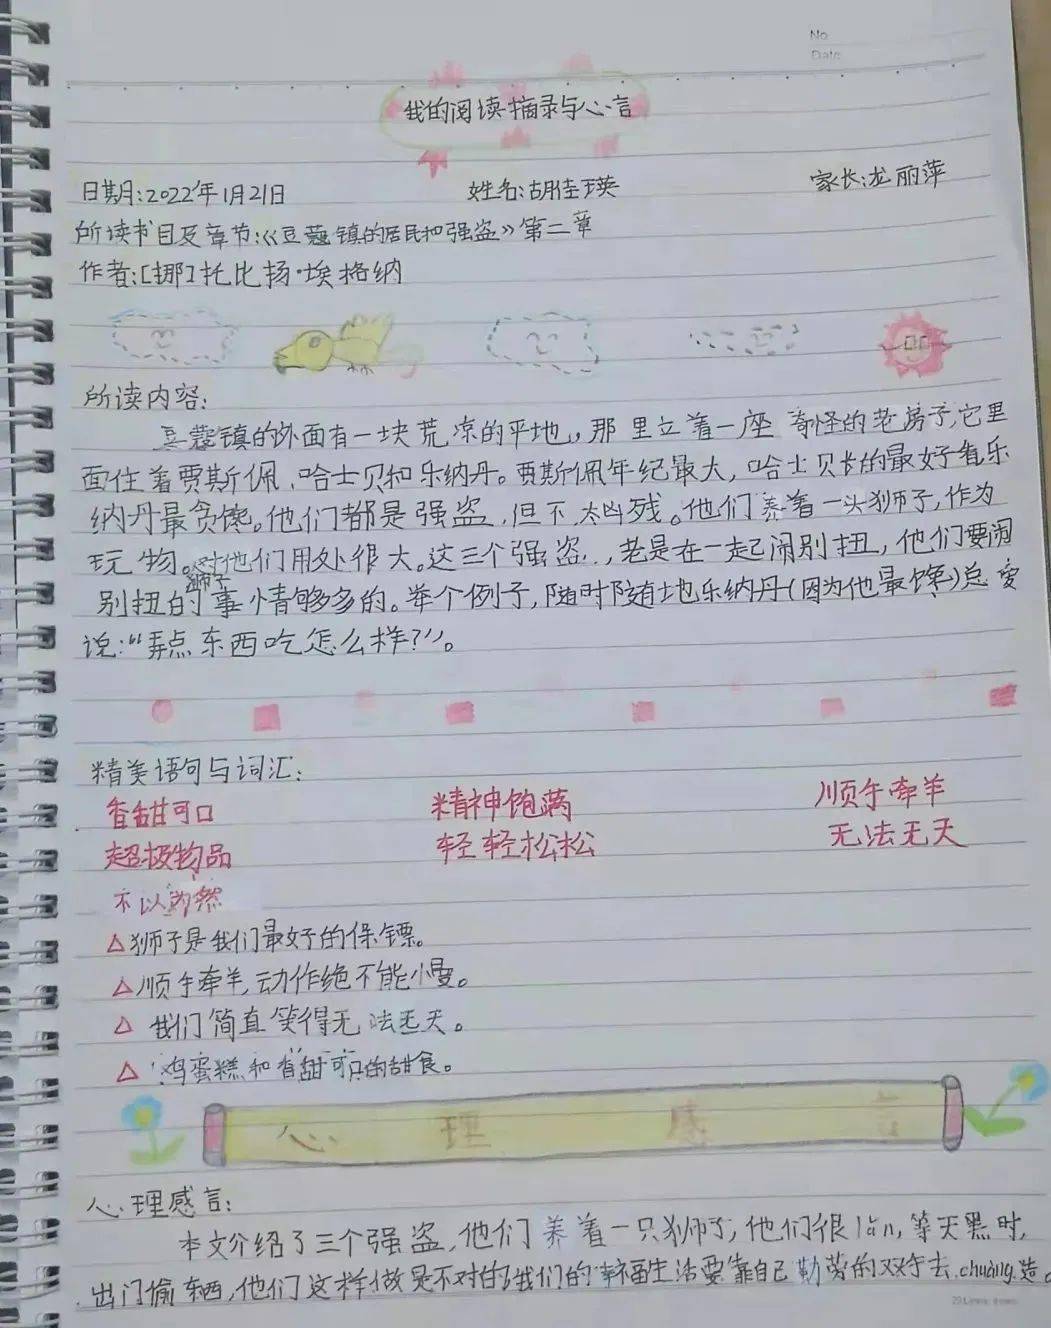 No
Date
我的阅读摘录与心言
日期:2022年1月21日 姓名:胡桂瑛 家长:龙丽萍
所读书目及章节:《豆蔻镇的居民和强盗》第二章
作者:[挪]托比扬·埃格纳
所读内容:
豆蔻镇的外面有一块荒凉的平地,那里立着一座奇怪的老房子,它里
面住着贾斯佩、哈士贝和乐纳丹。贾斯佩年纪最大,哈士贝长的最好看乐
纳丹最贪馋。他们都是强盗,但不太凶残。他们养着一头狮子,作为
玩物。狮子对他们用处很大。这三个强盗..,老是在一起闹别扭,他们要闹
别扭的事情够多的。举个例子,随时随地乐纳丹(因为他最馋)总爱
说:“弄点东西吃怎么样?”。
精美语句与词汇:
香甜可口 精神饱满 顺手牵羊
超极物品 轻轻松松 无法无天
不以为然
△狮子是我们最好的保镖。
△顺手牵羊,动作绝不能小曼。
△ 我们简直笑得无法无天。
△ 鸡蛋糕和香甜可口的甜食。
心 理 感 言
心理感言:
本文介绍了三个强盗,他们养着一只狮子,他们很lǎn,等天黑时,
出门偷东西,他们这样做是不对的我们的幸福生活要靠自己勤劳的双手去chuàng造。